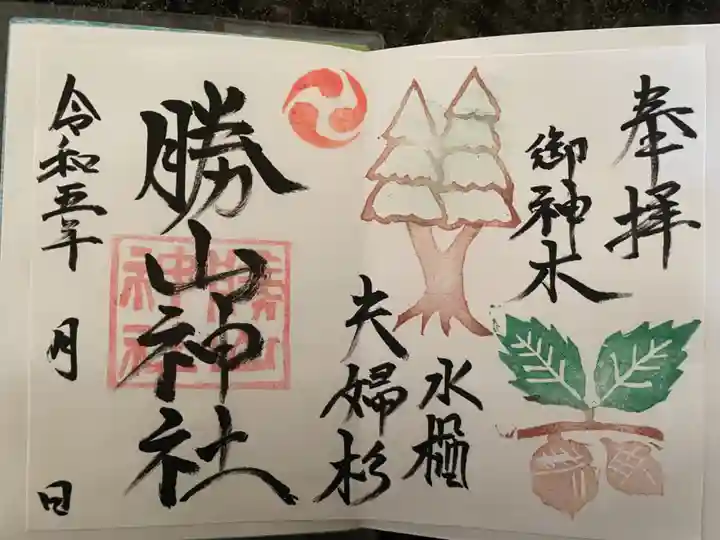 奉拝
御神木
水楢
夫婦杉
勝山神社
勝山神社
令和五年 月 日